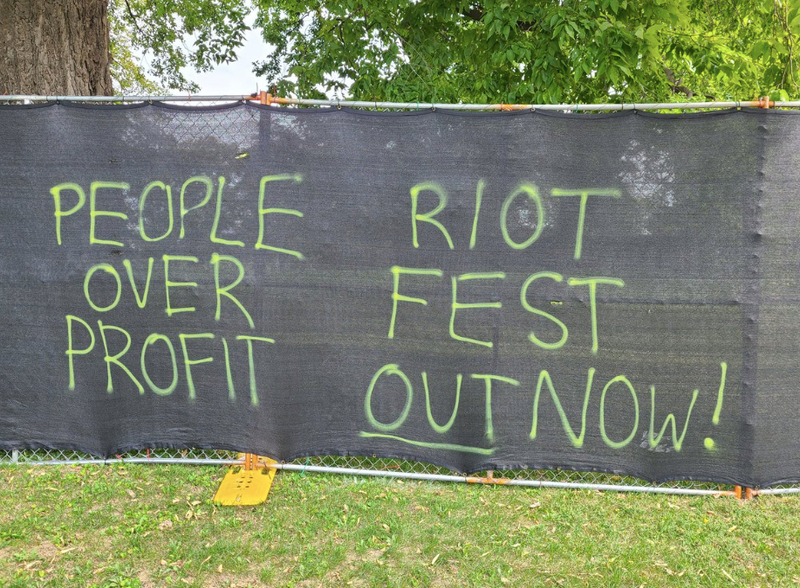 PEOPLE
OVER
PROFIT
RIOT
FEST
OUT NOW!